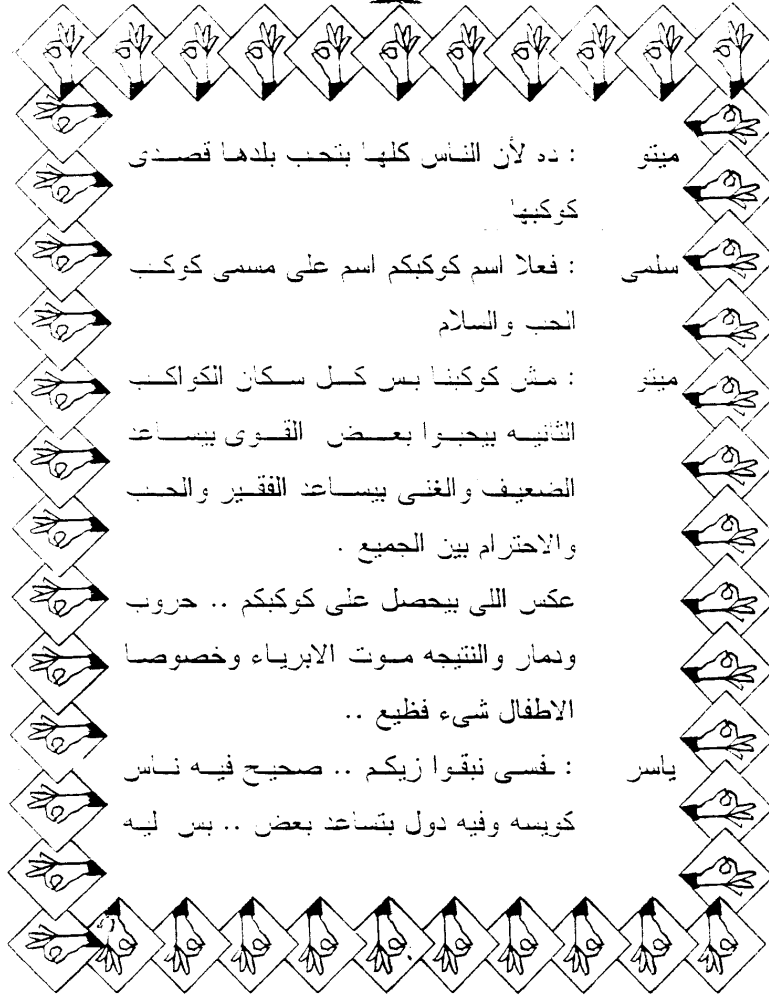 ميتو : ده لأن الناس كلها بتحب بلدها قصدى
كوكبها
سلمى : فعلا اسم كوكبكم اسم على مسمى كوكب
الحب والسلام
ميتو : مش كوكبنا بس كل سكان الكواكب
الثانيه بيحبوا بعض القوى بيساعد
الضعيف والغنى بيساعد الفقير والحب
والاحترام بين الجميع .
عكس اللى بيحصل على كوكبكم .. حروب
ودمار والنتيجه موت الابرياء وخصوصا
الاطفال شىء فظيع ..
ياسر : نفسى نبقوا زيكم .. صحيح فيه ناس
كويسه وفيه دول بتساعد بعض .. بس ليه